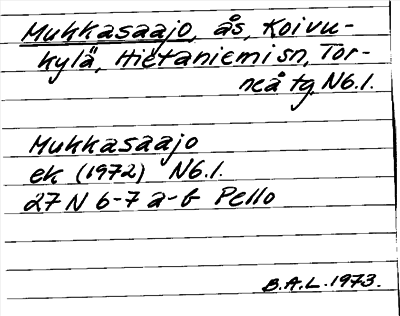 Mukkasaajo, ås, Koivu-
kylä, Hietaniemi sn, Tor-
neå tg. Nb.l.
Mukkasaajo
ek (1972) Nb.l.
27 N 6-7 a-b Pello
B.A.L. 1973.